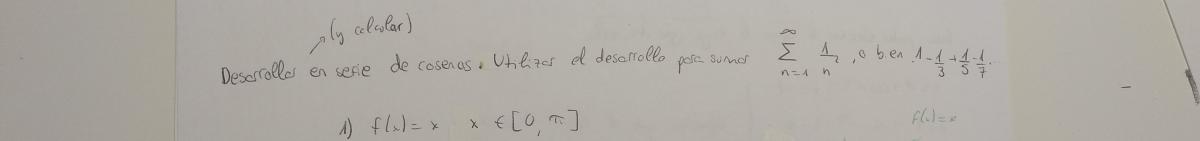 (y calcular)
Desarrollar en serie de cosenos. Utilizar el desarrollo para sumar ∞ ∑ n=1 1/n², o bien 1 - 1/3 + 1/5 - 1/7 ...
1) f(x) = x x ∈ [0, π]
f(x) = x